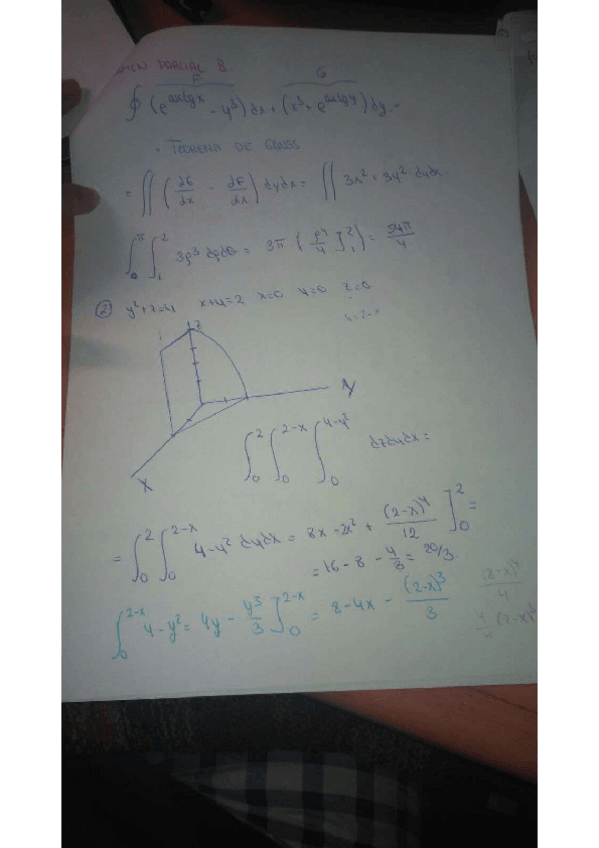 PARCIAL B.
F G
∮ (e^(arctg x) - y³) dx + (x³ + e^(arctg y)) dy =
· TEOREMA DE GAUSS
= ∬ (dG/dx - dF/dx) dydx = ∬ 3x² + 3y² dydx
∫₀^π ∫₁² 3ρ³ dρdθ = 3π (ρ⁴/4 ]₁²) = 54π/4
② y²+z=4 x+y=2 x=0 y=0 z=0
z
y
x
∫₀² ∫₀^(2-x) ∫₀^(4-y²) dzdydx =
= ∫₀² ∫₀^(2-x) 4-y² dydx = 8x - 2x² + (2-x)⁴/12 ]₀² =
= 16 - 8 - 4/3 = 20/3
∫₀^(2-x) 4-y² = 4y - y³/3 ]₀^(2-x) = 8-4x - (2-x)³/3